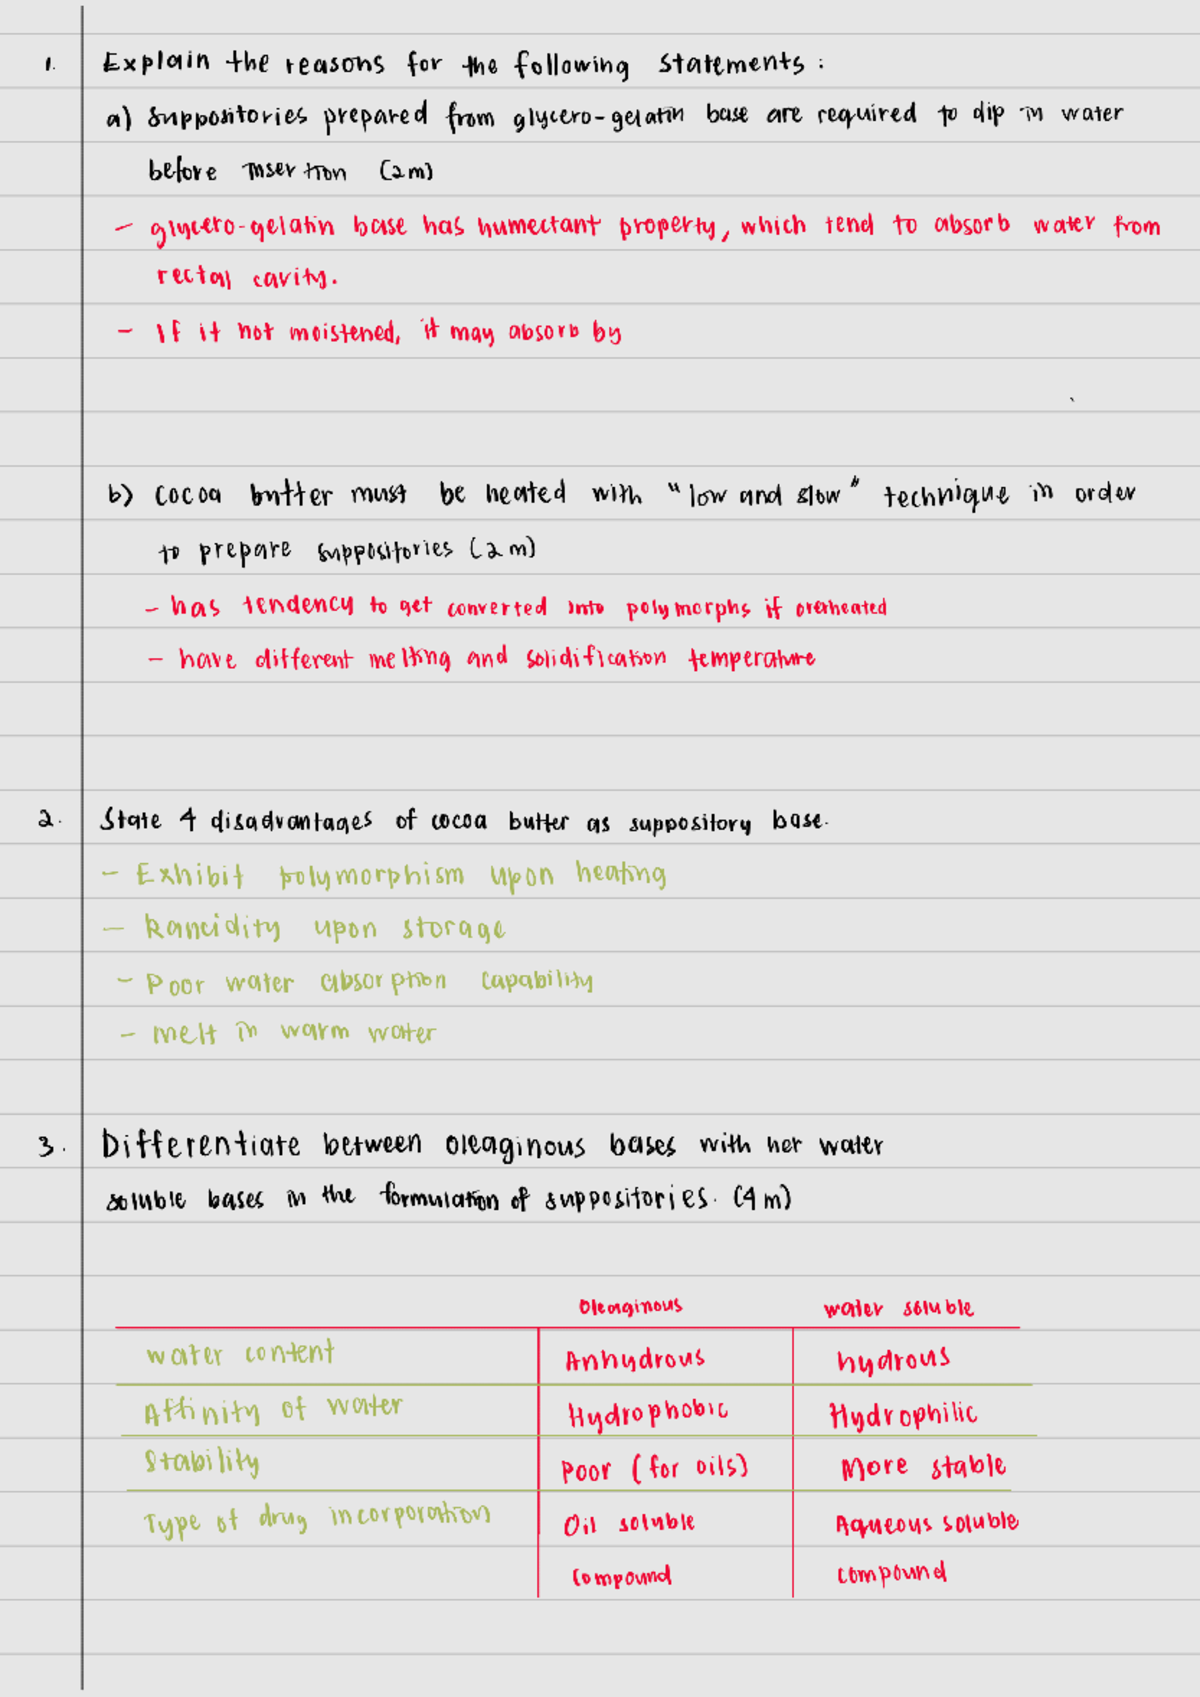 1. Explain the reasons for the following statements :
a) Suppositories prepared from glycero-gelatin base are required to dip in water
before insertion (2m)
- glycero-gelatin base has humectant property, which tend to absorb water from
rectal cavity.
- If it not moistened, it may absorb by
b) cocoa butter must be heated with "low and slow" technique in order
to prepare suppositories (2m)
- has tendency to get converted into polymorphs if overheated
- have different melting and solidification temperature
2. State 4 disadvantages of cocoa butter as suppository base.
- Exhibit polymorphism upon heating
- Rancidity upon storage
- Poor water absorption capability
- melt in warm water
3. Differentiate between oleaginous bases with her water
soluble bases in the formulation of suppositories. (4m)
Oleaginous water soluble
water content Anhydrous hydrous
Affinity of water Hydrophobic Hydrophilic
Stability Poor (for oils) More stable
Type of drug incorporation Oil soluble Aqueous soluble
compound compound